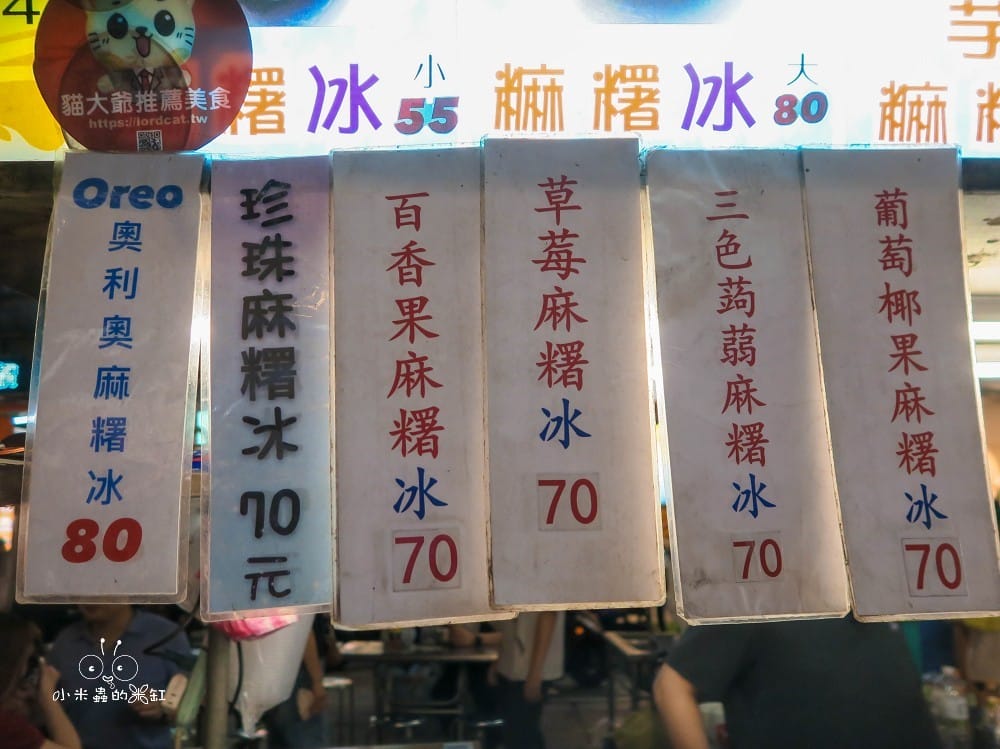 4
貓大爺推薦美食
https://iordcat.tw
糬冰 小 55
麻糬冰 大 80
芋
麻
Oreo
奧利奧麻糬冰
80
珍珠麻糬冰 70元
百香果麻糬冰
70
草莓麻糬冰
70
三色蒟蒻麻糬冰
70
葡萄椰果麻糬冰
70
小米蟲的米缸